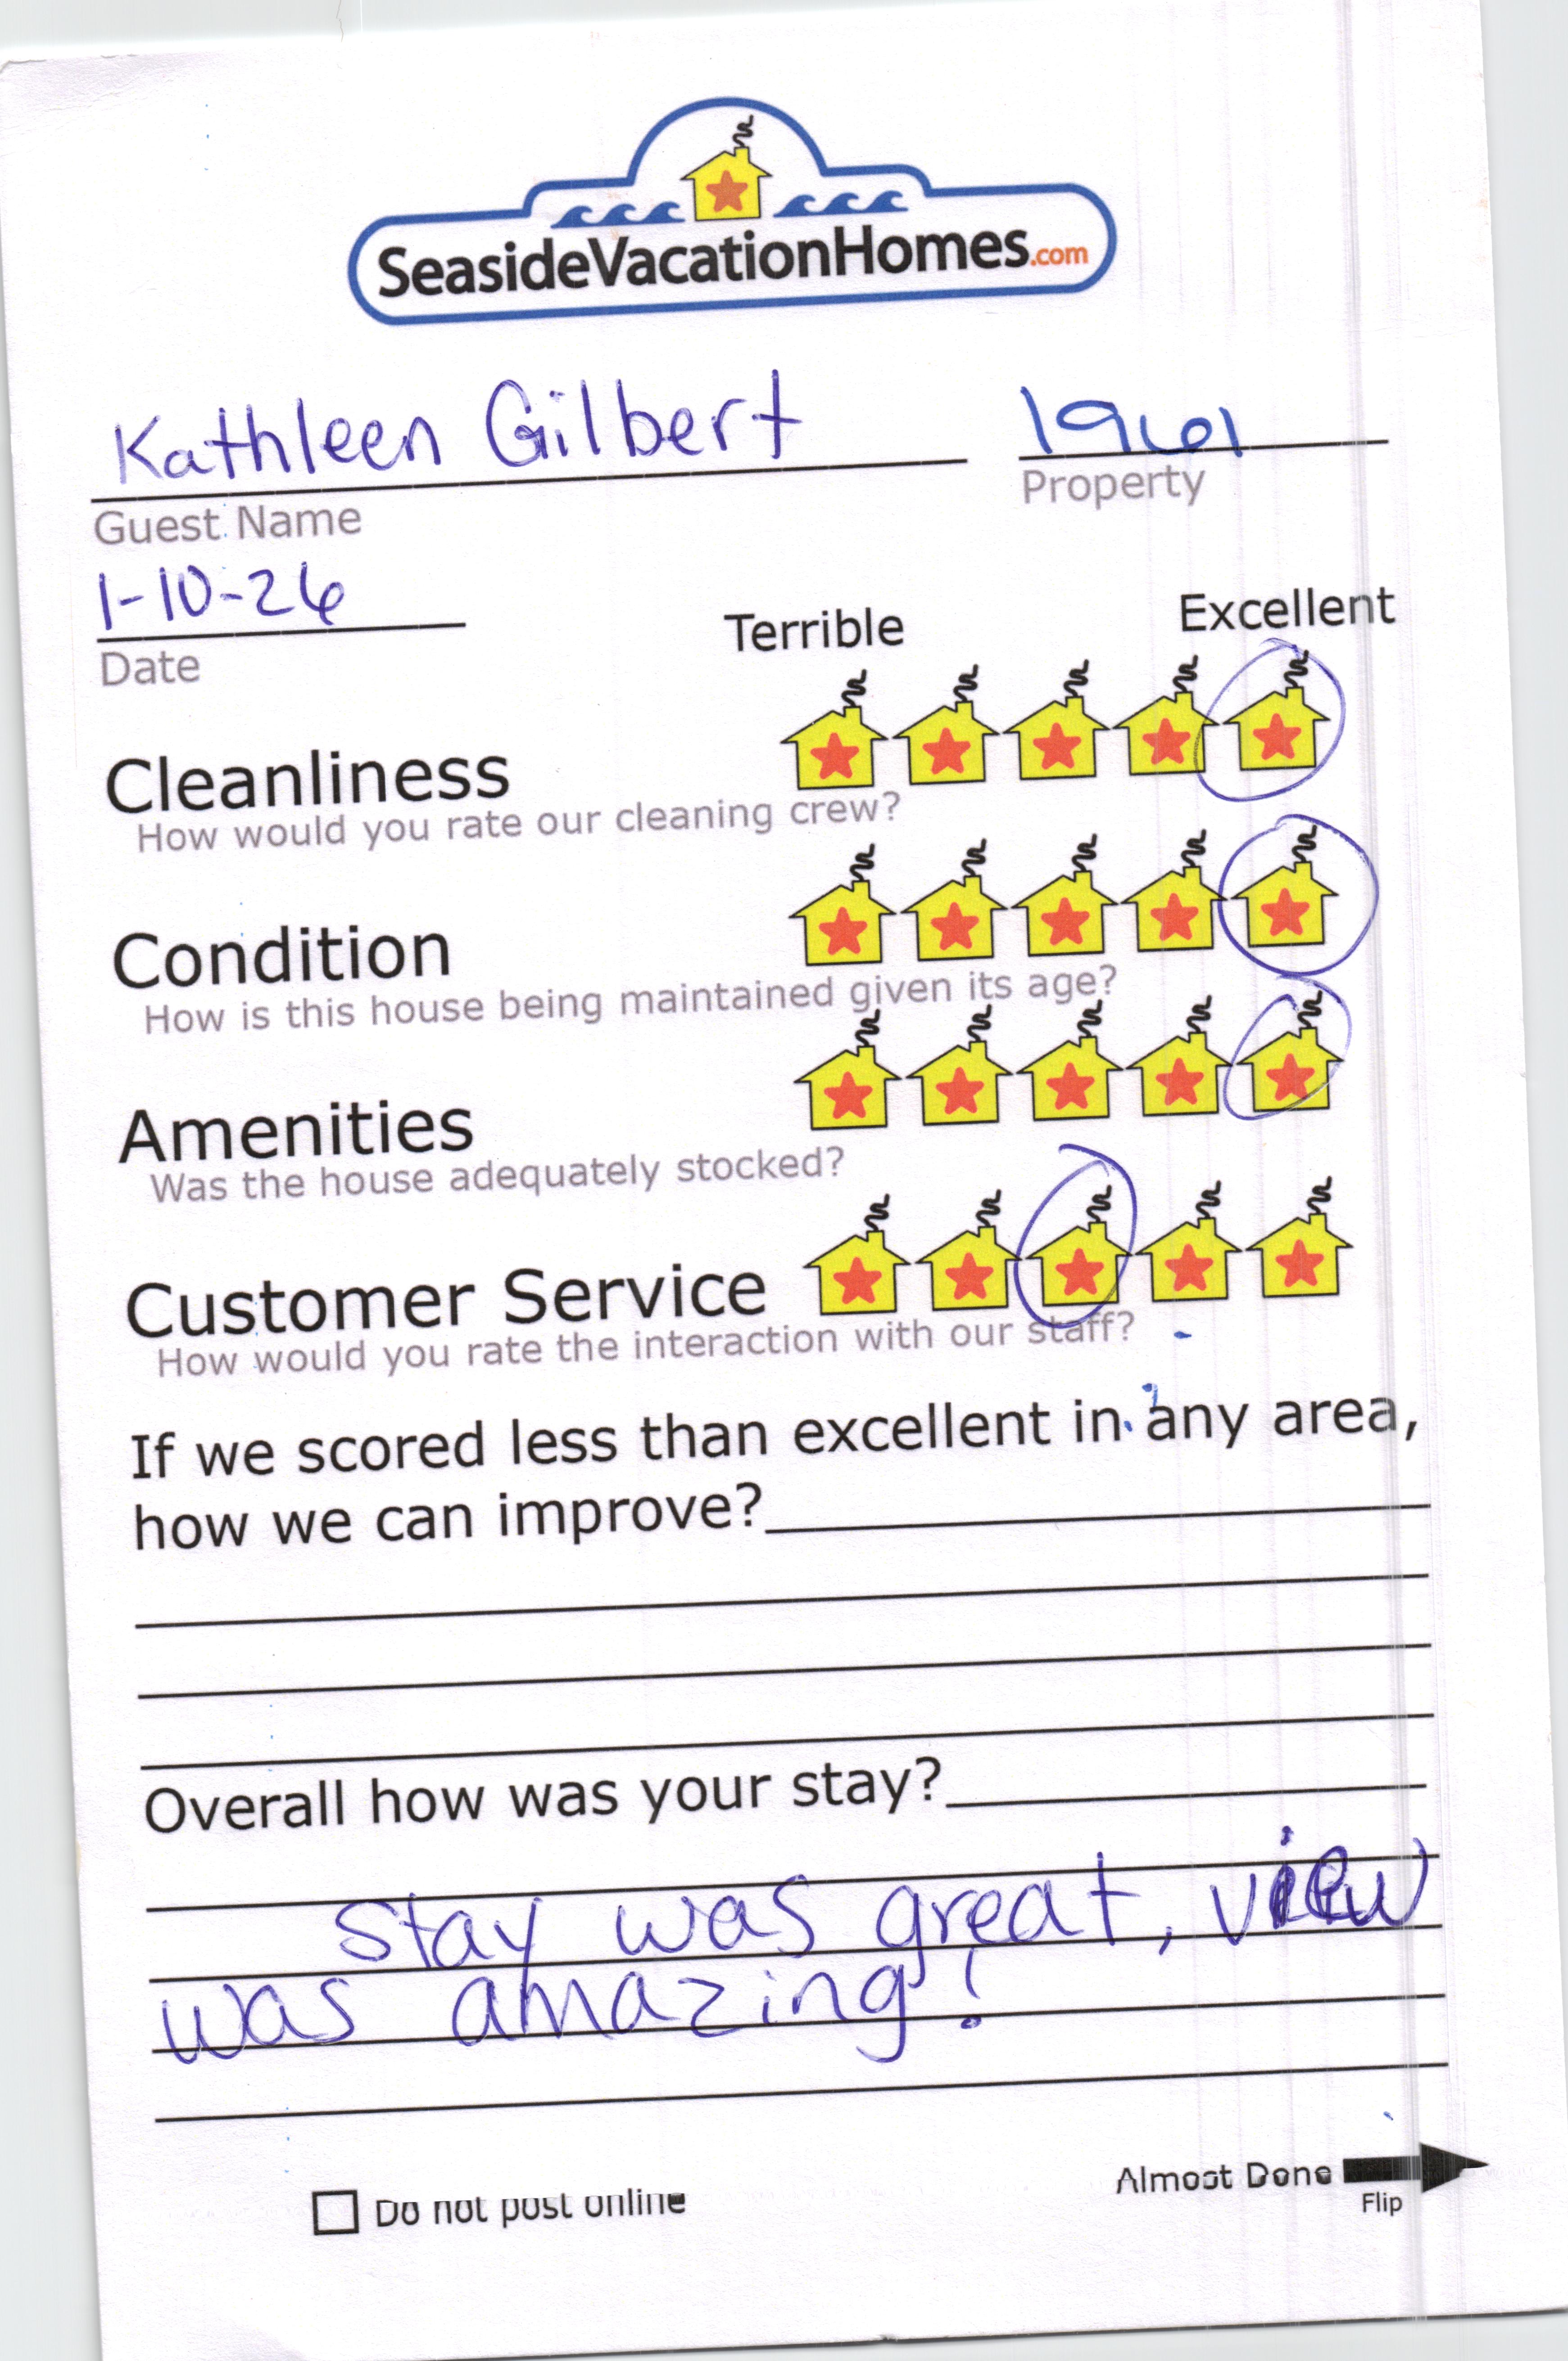 SeasideVacationHomes.com
Kathleen Gilbert 1961
Guest Name Property
1-10-26
Date
Terrible Excellent
Cleanliness
How would you rate our cleaning crew?
Condition
How is this house being maintained given its age?
Amenities
Was the house adequately stocked?
Customer Service
How would you rate the interaction with our staff?
If we scored less than excellent in any area,
how we can improve?
Overall how was your stay?
Stay was great, view
was amazing!
Do not post online
Almost Done
Flip